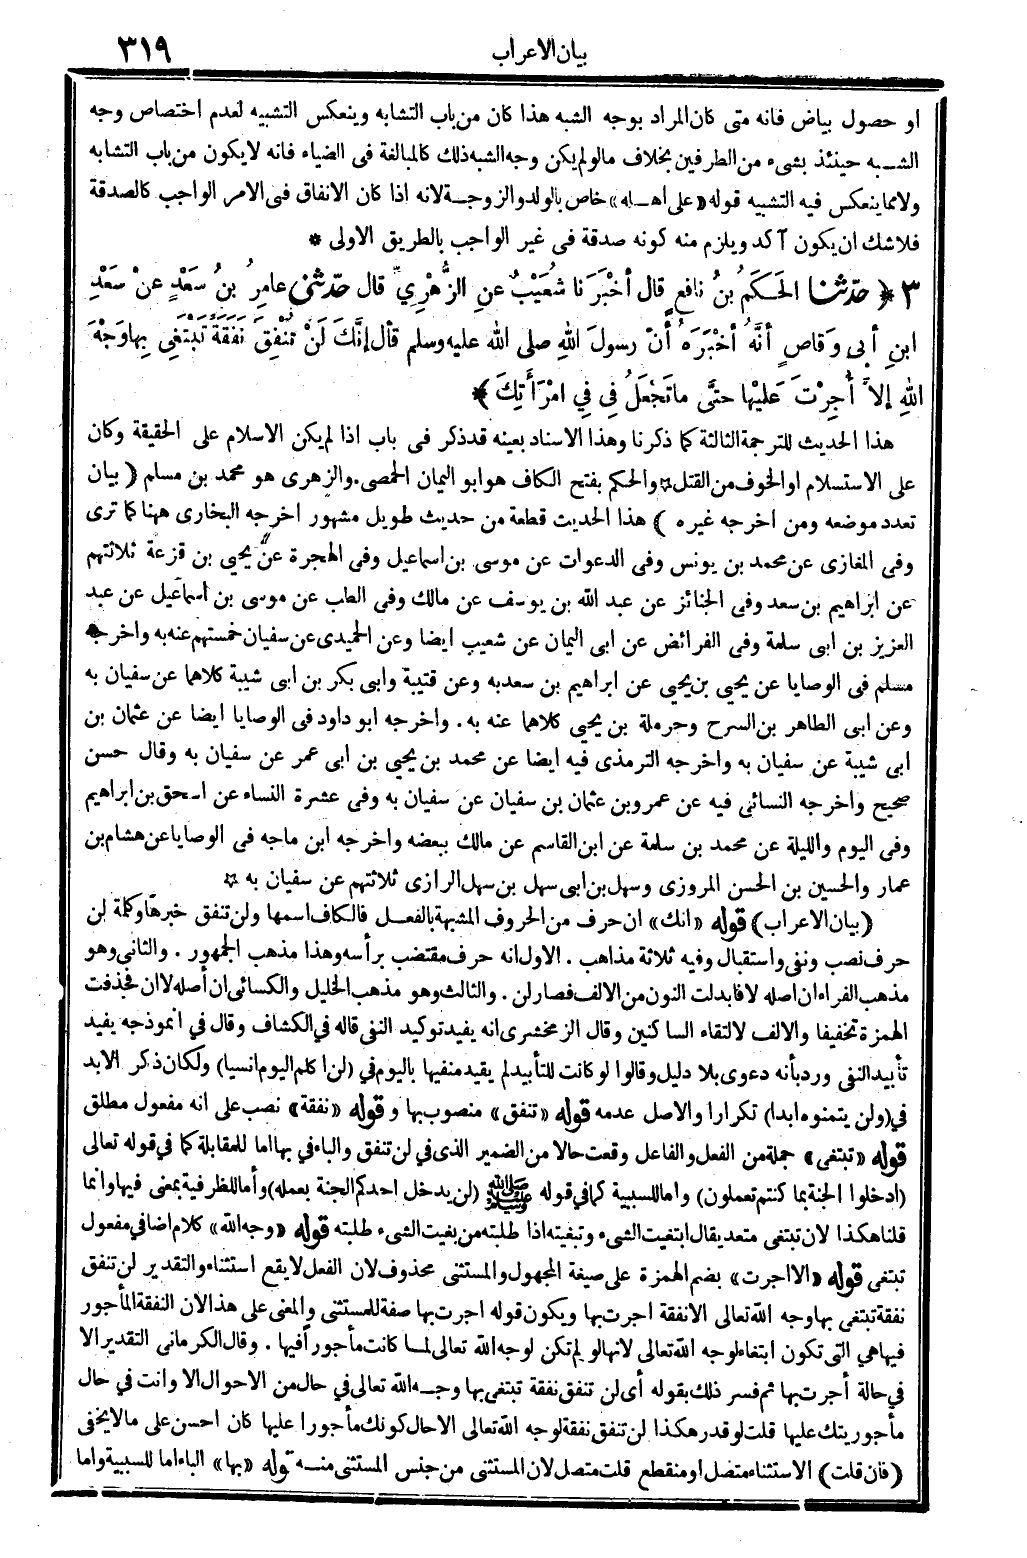 بيان الاعراب ٣١٩
او حصول بياض فانه متى كان المراد بوجه الشبه هذا كان من باب التشابه وينعكس التشبيه لعدم اختصاص وجه
الشبه حينئذ بشىء من الطرفين بخلاف مالو لم يكن وجه الشبه ذلك كالمبالغة فى الضياء فانه لا يكون من باب التشابه
ولا مما ينعكس فيه التشبيه قوله «على أهله» خاص بالولد والزوجة لانه اذا كان الانفاق فى الامر الواجب كالصدقة
فلا شك ان يكون آكد ويلزم منه كونه صدقة فى غير الواجب بالطريق الاولى *
٣ ﴿ حدّثنا الحَكَمُ بنُ نافِعٍ قال أخْبَرَنا شُعَيْبٌ عنِ الزُّهْرِيِّ قال حدّثنى عامِرُ بنُ سَعْدٍ عنْ سَعْدِ
ابنِ أبى وَقاصٍ أنَّهُ أخْبَرَهُ أنّ رسولَ اللهِ صلى الله عليه وسلم قال إنَّكَ لَنْ تُنْفِقَ نَفَقَةً تَبْتَغِى بِها وَجْهَ
اللهِ إلاَّ أُجِرْتَ عَلَيْها حتَّى ما تَجْعَلُ فِى فِى امْرَأَتِكَ ﴾ *
هذا الحديث للترجمة الثالثة كما ذكرنا وهذا الاسناد بعينه قد ذكر فى باب اذا لم يكن الاسلام على الحقيقة وكان
على الاستسلام او الخوف من القتل * والحكم بفتح الكاف هو ابو اليمان الحمصى . والزهرى هو محمد بن مسلم ( بيان
تعدد موضعه ومن اخرجه غيره ) هذا الحديث قطعة من حديث طويل مشهور اخرجه البخارى ههنا كما ترى
وفى المغازى عن محمد بن يونس وفى الدعوات عن موسى بن اسماعيل وفى الهجرة عن يحيى بن قزعة ثلاثتهم
عن ابراهيم بن سعد وفى الجنائز عن عبد الله بن يوسف عن مالك وفى الطب عن موسى بن اسماعيل عن عبد
العزيز بن ابى سلمة وفى الفرائض عن ابى اليمان عن شعيب ايضا وعن الحميدى عن سفيان خمستهم عنه به واخرجه
مسلم فى الوصايا عن يحيى بن يحيى عن ابراهيم بن سعد به وعن قتيبة وابى بكر بن ابى شيبة كلاهما عن سفيان به
وعن ابى الطاهر بن السرح وحرملة بن يحيى كلاهما عنه به . واخرجه ابو داود فى الوصايا ايضا عن عثمان بن
ابى شيبة عن سفيان به واخرجه الترمذى فيه ايضا عن محمد بن يحيى بن ابى عمر عن سفيان به وقال حسن
صحيح واخرجه النسائى فيه عن عمرو بن عثمان بن سفيان عن سفيان به وفى عشرة النساء عن اسحق بن ابراهيم
وفى اليوم والليلة عن محمد بن سلمة عن ابن القاسم عن مالك ببعضه واخرجه ابن ماجه فى الوصايا عن هشام بن
عمار والحسين بن الحسن المروزى وسهل بن ابى سهل بن سهل الرازى ثلاثتهم عن سفيان به *
(بيان الاعراب) قوله «انك» ان حرف من الحروف المشبهة بالفعل فالكاف اسمها ولن تنفق خبرها وكلمة لن
حرف نصب ونفى واستقبال وفيه ثلاثة مذاهب . الاول انه حرف مقتضب برأسه وهذا مذهب الجمهور . والثانى وهو
مذهب الفراء ان اصله لا فابدلت النون من الالف فصار لن . والثالث وهو مذهب الخليل والكسائى ان أصله لا ان فحذفت
الهمزة تخفيفا والالف لالتقاء الساكنين وقال الزمخشرى انه يفيد توكيد النفى قاله في الكشاف وقال في انموذجه يفيد
تأبيد النفى ورد بأنه دعوى بلا دليل وقالوا لو كانت للتأبيد لم يقيد منفيها باليوم في (لن اكلم اليوم انسيا) ولكان ذكر الابد
في (ولن يتمنوه ابدا) تكرارا والاصل عدمه قوله «تنفق» منصوب بها و قوله «نفقة» نصب على انه مفعول مطلق
قوله «تبتغى» جملة من الفعل والفاعل وقعت حالا من الضمير الذى في لن تنفق والباء في بها اما للمقابلة كما في قوله تعالى
(ادخلوا الجنة بما كنتم تعملون) واما للسببية كما في قوله ﷺ (لن يدخل احدكم الجنة بعمله) وأما للظرفية بمعنى فيها وانما
قلنا هكذا لان تبتغى متعد يقال ابتغيت الشىء وتبغيته اذا طلبته من بغيت الشىء طلبته قوله «وجه الله» كلام اضافي مفعول
تبتغى قوله «الا اجرت» بضم الهمزة على صيغة المجهول والمستثنى محذوف لان الفعل لا يقع استثناء والتقدير لن تنفق
نفقة تبتغى بها وجه الله تعالى الا نفقة اجرت بها ويكون قوله اجرت بها صفة للمستثنى والمعنى على هذا لان النفقة المأجور
فيها هي التى تكون ابتغاء لوجه الله تعالى لانها لو لم تكن لوجه الله تعالى لما كانت مأجورا فيها . وقال الكرمانى التقدير الا
في حالة أجرت بها ثم فسر ذلك بقوله أى لن تنفق نفقة تبتغى بها وجه الله تعالى في حال من الاحوال الا وانت في حال
مأجوريتك عليها قلت لو قدر هكذا لن تنفق نفقة لوجه الله تعالى الا حال كونك مأجورا عليها كان احسن على مالا يخفى
(فان قلت) الاستثناء متصل او منقطع قلت متصل لان المستثنى من جنس المستثنى منه قوله «بها» الباء اما للسببية واما